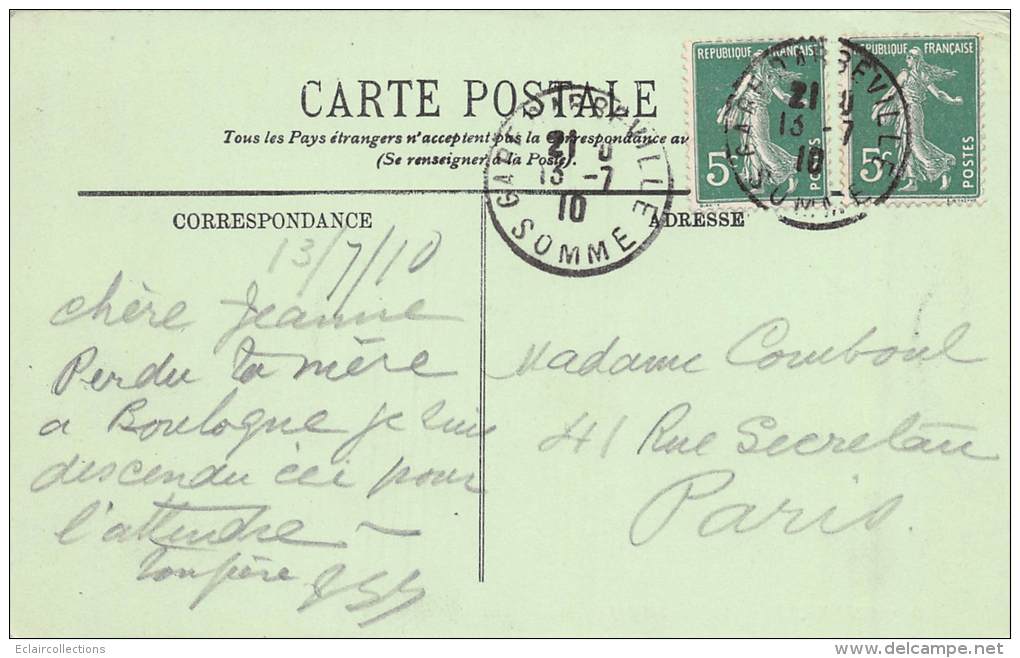 CARTE POSTALE
Tous les Pays étrangers n'acceptent pas la Correspondance au
(Se renseigner à la Poste).
REPUBLIQUE FRANÇAISE
5c
POSTES
REPUBLIQUE FRANÇAISE
5c
POSTES
GARE D'ABBEVILLE
21
13 -7
10
SOMME
GARE D'ABBEVILLE
21
13 -7
10
SOMME
CORRESPONDANCE
ADRESSE
13/7/10
chère Jeanne
Perdu ta mère
a Boulogne je suis
descendu ici pour
l'attendre
ton père
Madame Comboul
41 Rue Secretan
Paris
Eclaircollections
www.delcampe.net